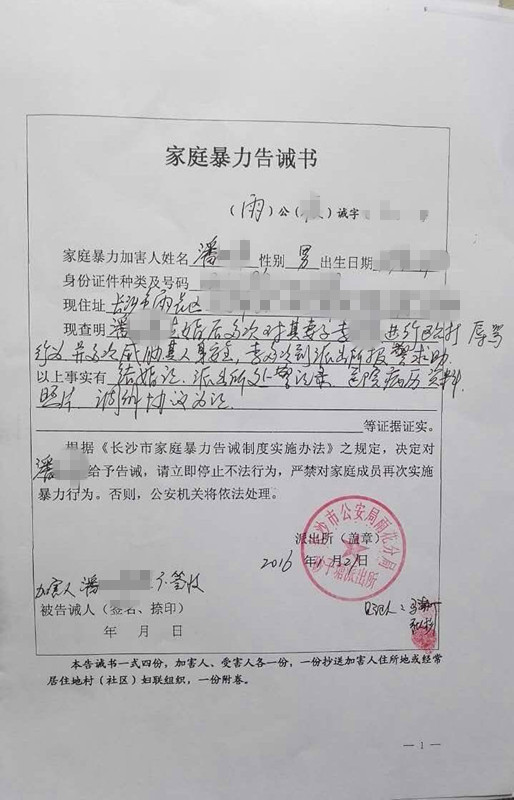 家庭暴力告诫书
（雨）公（ ）诫字
家庭暴力加害人姓名 潘 性别 男 出生日期
身份证件种类及号码
现住址 长沙市雨花区
现查明 潘 在婚后多次对其妻子李 进行殴打 辱骂
行为 并多次威胁其人身安全，李多次到派出所报警求助.
以上事实有 结婚证、派出所处警记录 医院病历资料
照片 调解协议为证
等证据证实。
根据《长沙市家庭暴力告诫制度实施办法》之规定，决定对
潘 给予告诫，请立即停止不法行为，严禁对家庭成员再次实施
暴力行为。否则，公安机关将依法处理。
长沙市公安局雨花分局
派出所（盖章）
派出所
2016年1月21日
加害人潘 不签收
被告诫人（签名、捺印）
年 月 日
本告诫书一式四份，加害人、受害人各一份，一份抄送加害人住所地或经常
居住地村（社区）妇联组织，一份附卷。
— 1 —